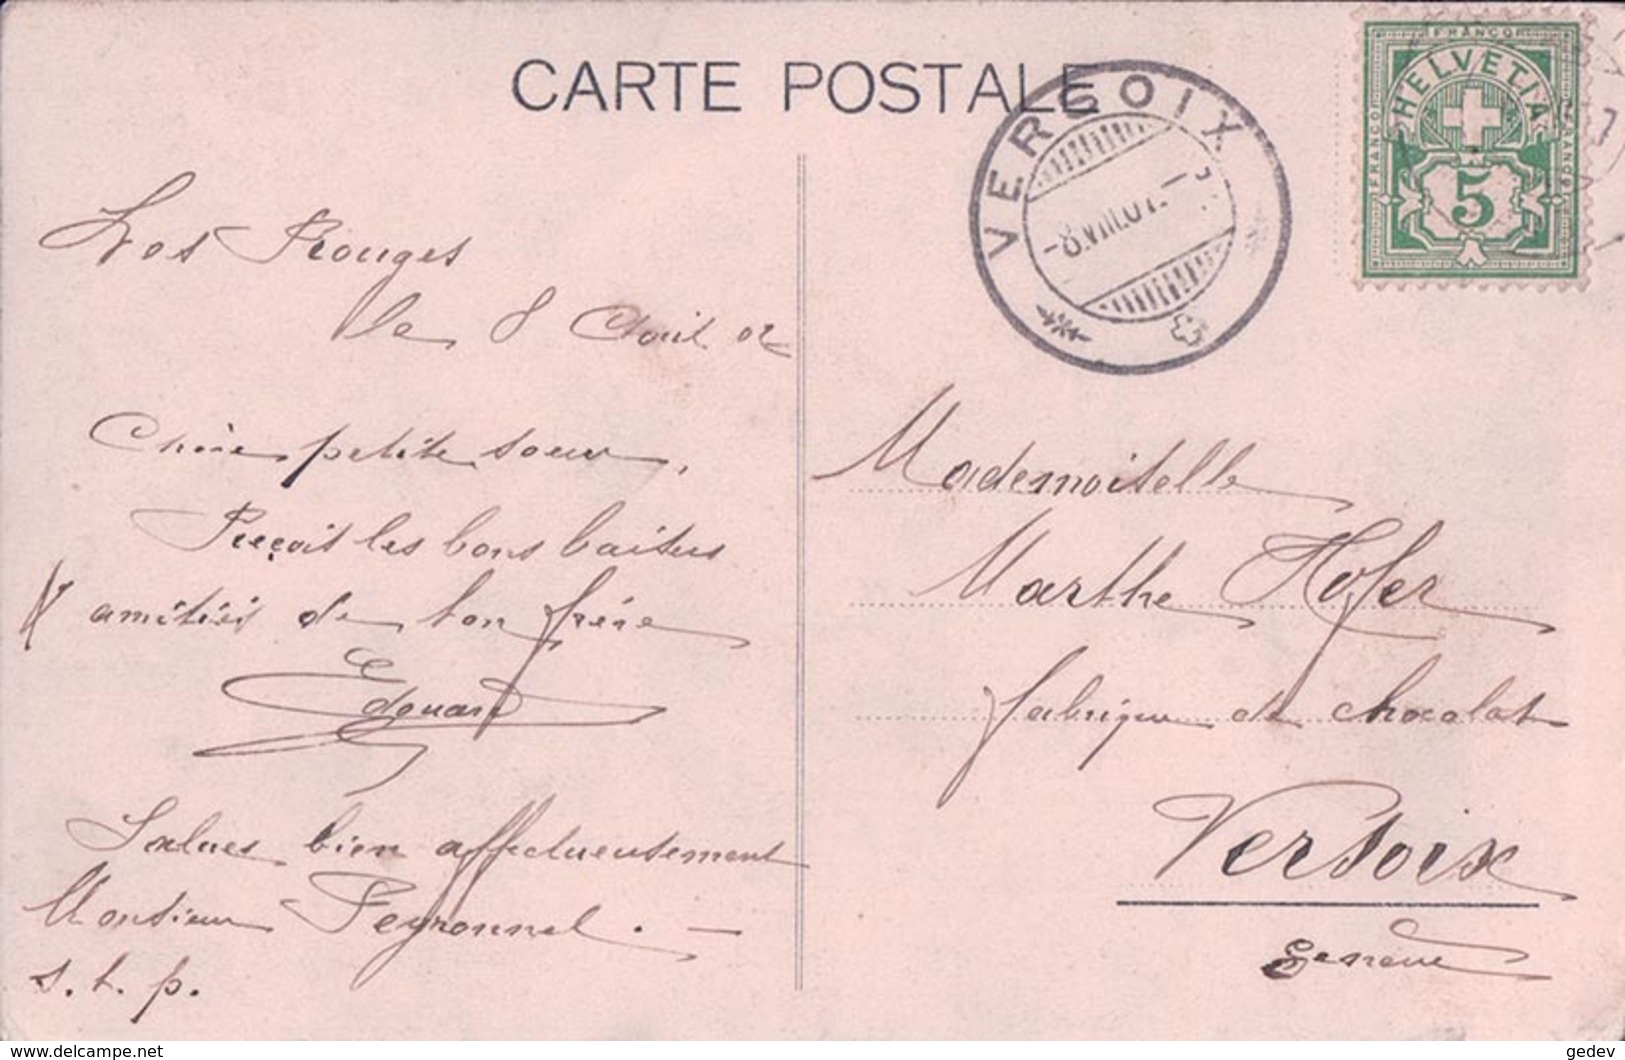 CARTE POSTALE
VERSOIX
-8.VIII.07.-
FRANCO
HELVETIA
FRANCO
FRANCO
5
Les Rouges
le 8 Août 07
Chère petite soeur,
Reçois les bons baisers
& amitiés de ton frère
Edouard
Salues bien affectueusement
Monsieur Peyronnet. —
s. t. p.
Mademoiselle
Marthe Hofer
fabrique de chocolat
Versoix
Genève
www.delcampe.net
gedev